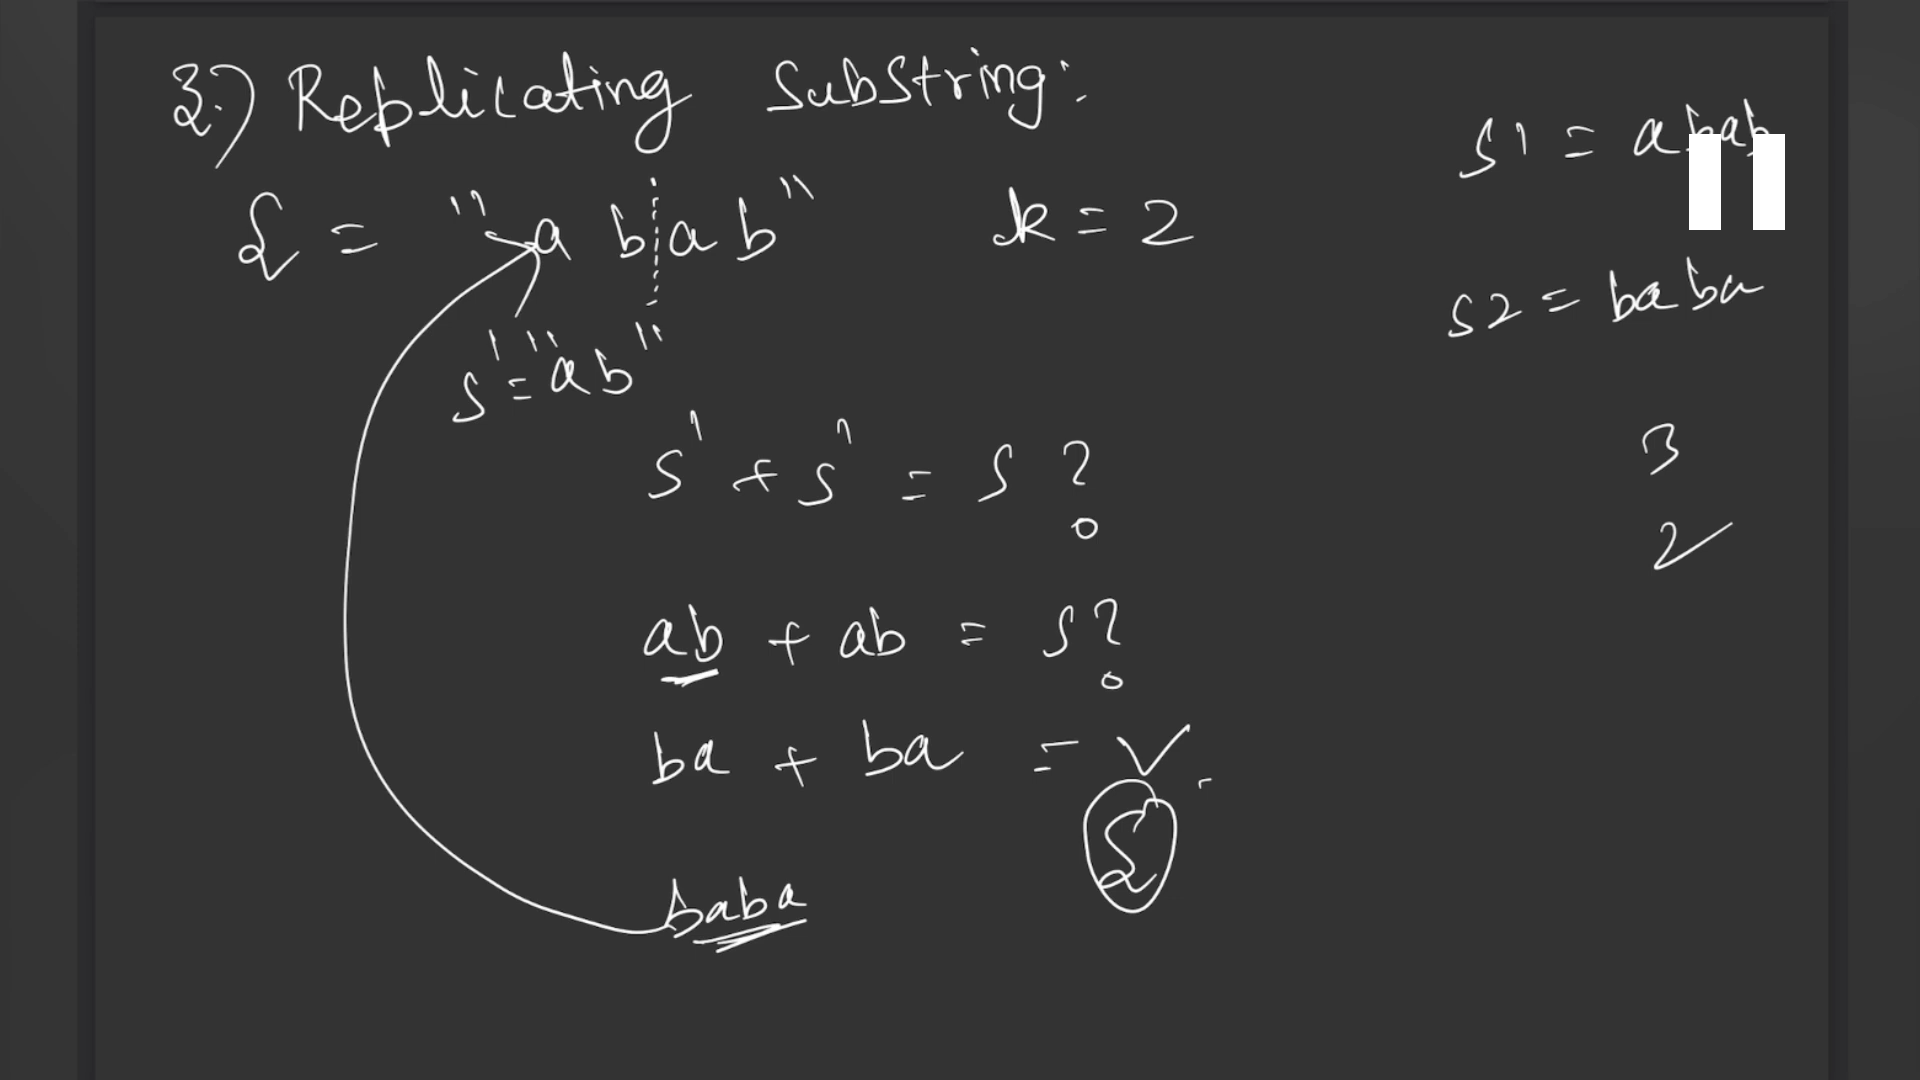 3.) Replicating Substring:
S = "abab" k = 2
s' = "ab"
s' + s' = s ?
ab + ab = s ?
ba + ba =
S
baba
s1 = abab
s2 = baba
3
2